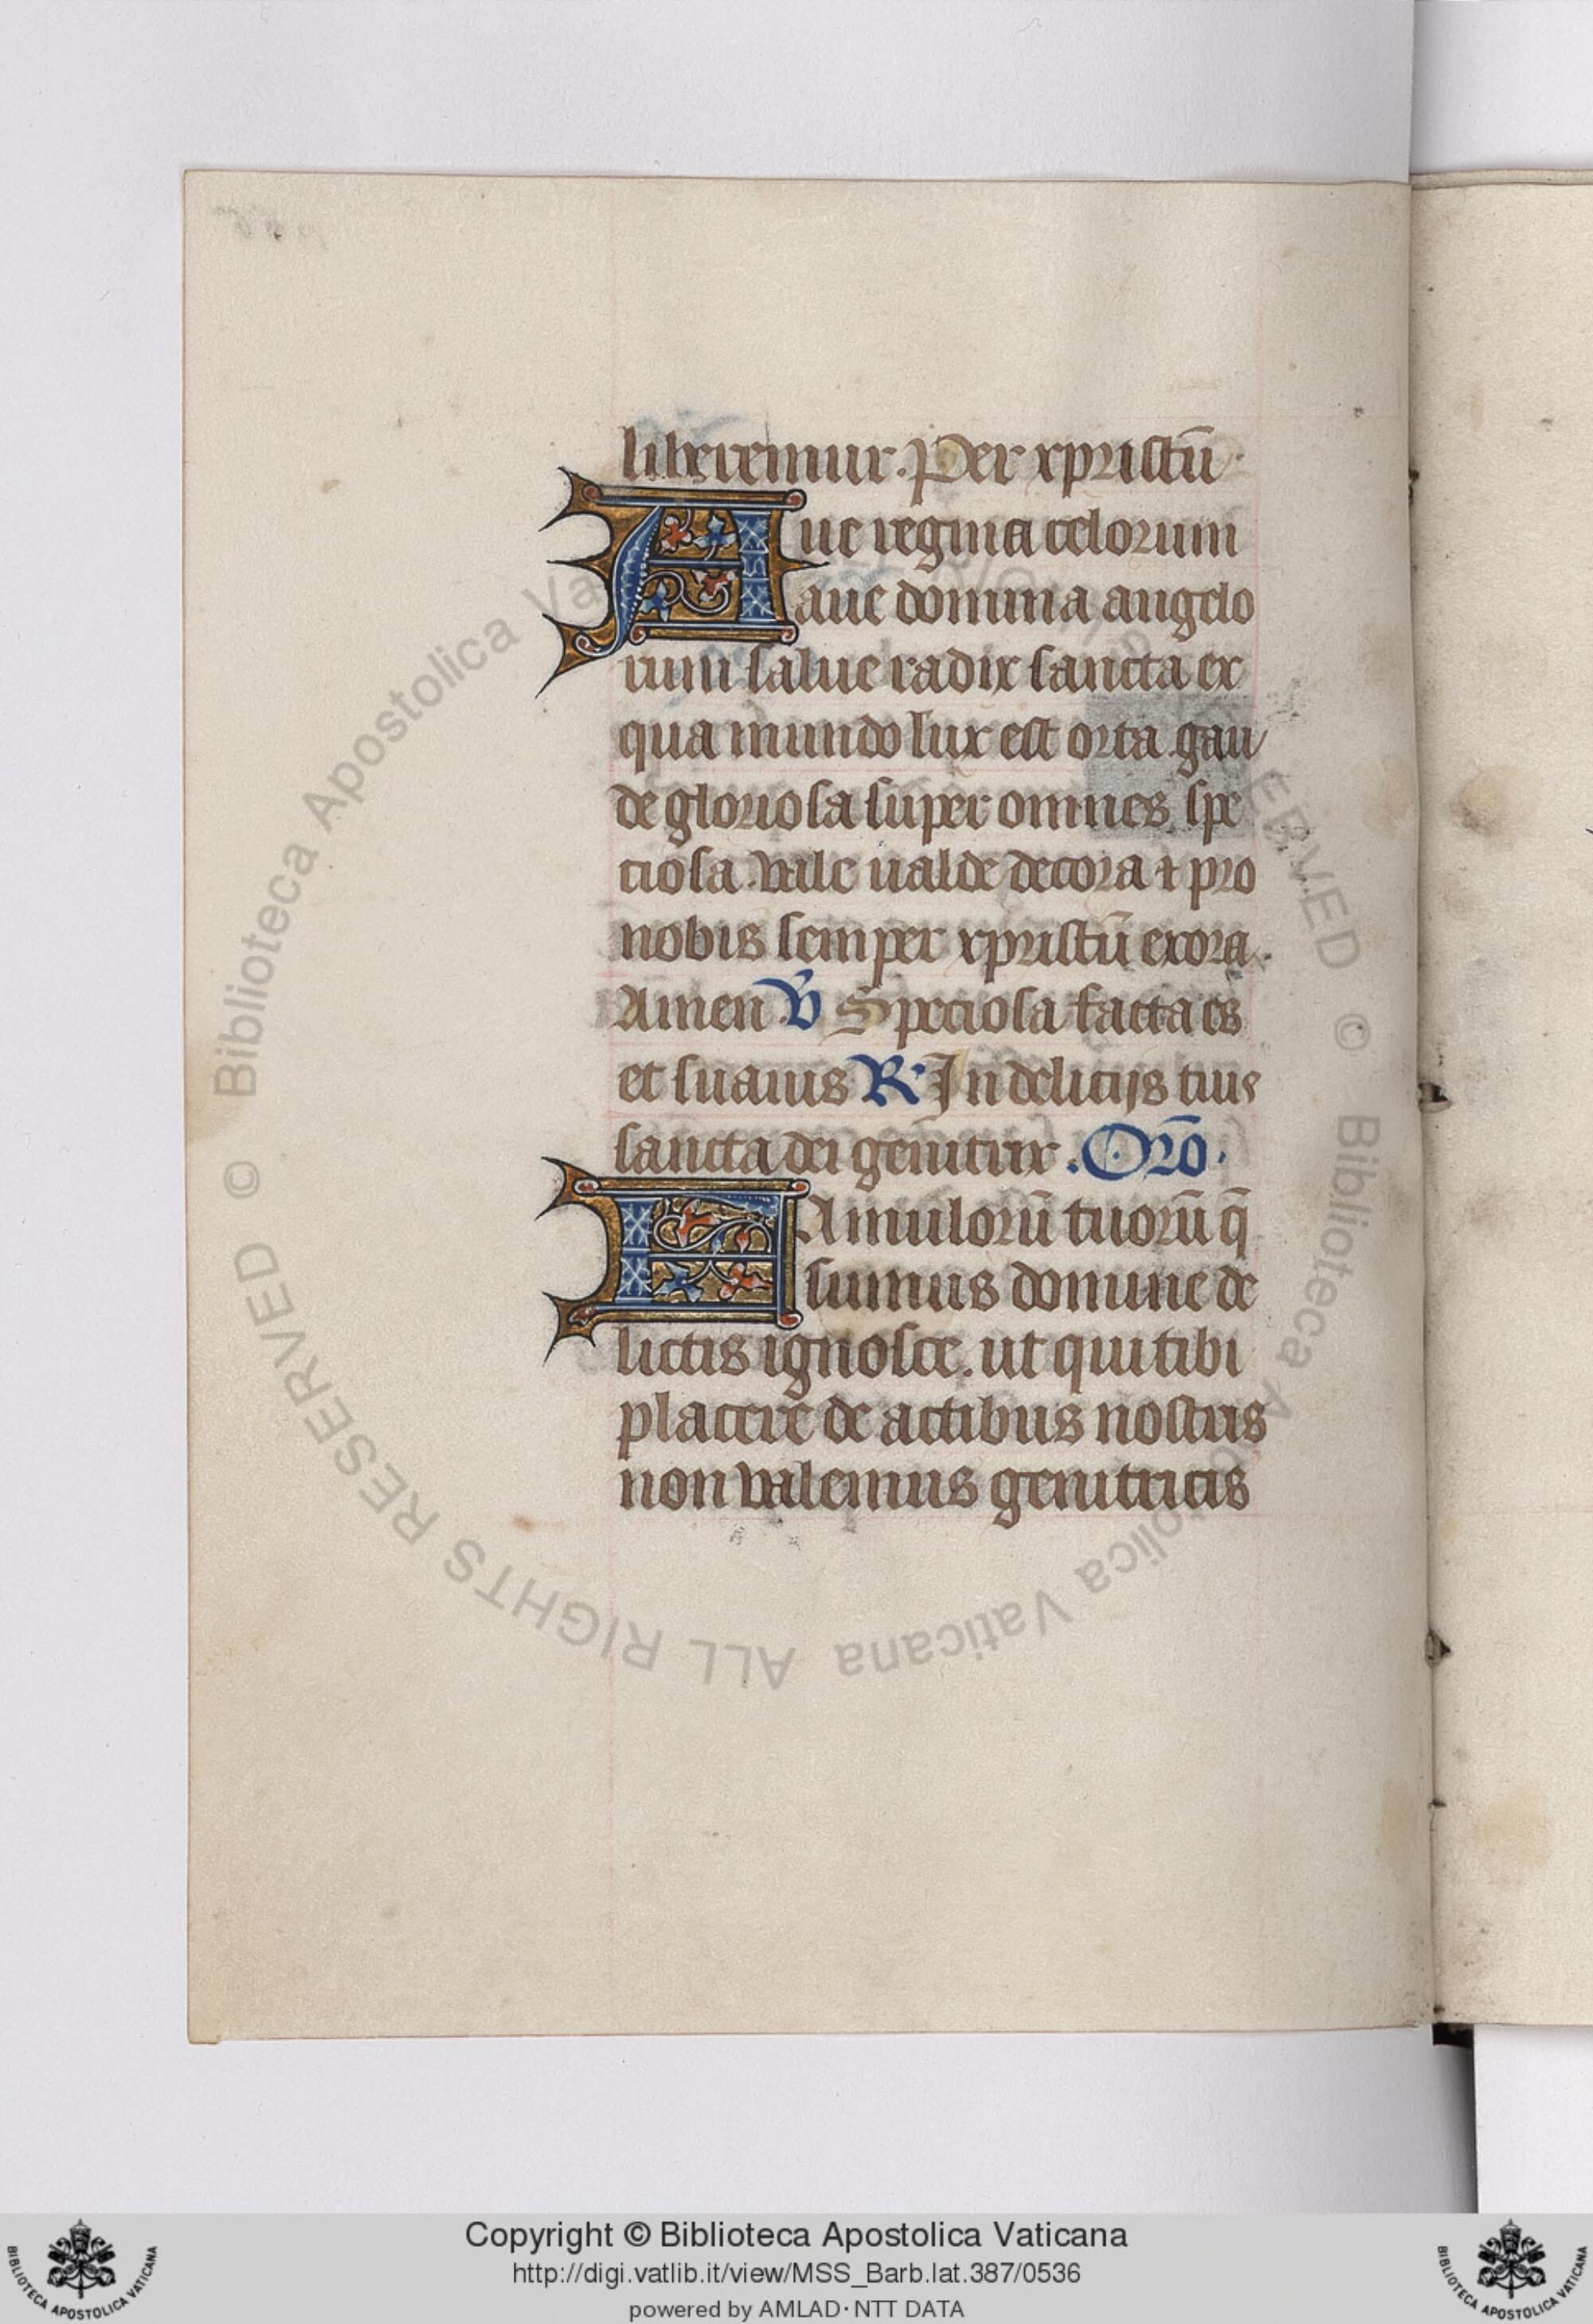 liberemur. Per xpristū
Aue regina celorum
aue domina angelo
rum salue radix sancta ex
qua mundo lux est orta gau
de gloriosa super omnes spe
ciosa. vale ualde decora ⁊ pro
nobis semper xpristū exora.
Amen. V̄ Speciosa facta es
et suauis R. In delicijs tuis
sancta dei genitrix. Orō.
FAmulorū tuorū q̄
sumus domine de
lictis ignosce. ut qui tibi
placere de actibus nostris
non valemus genitricis
© Biblioteca Apostolica Vaticana ALL RIGHTS RESERVED
© Biblioteca Apostolica Vaticana ALL RIGHTS RESERVED
Copyright © Biblioteca Apostolica Vaticana
http://digi.vatlib.it/view/MSS_Barb.lat.387/0536
powered by AMLAD·NTT DATA
BIBLIOTECA APOSTOLICA VATICANA
BIBLIOTECA APOSTOLICA VATICANA